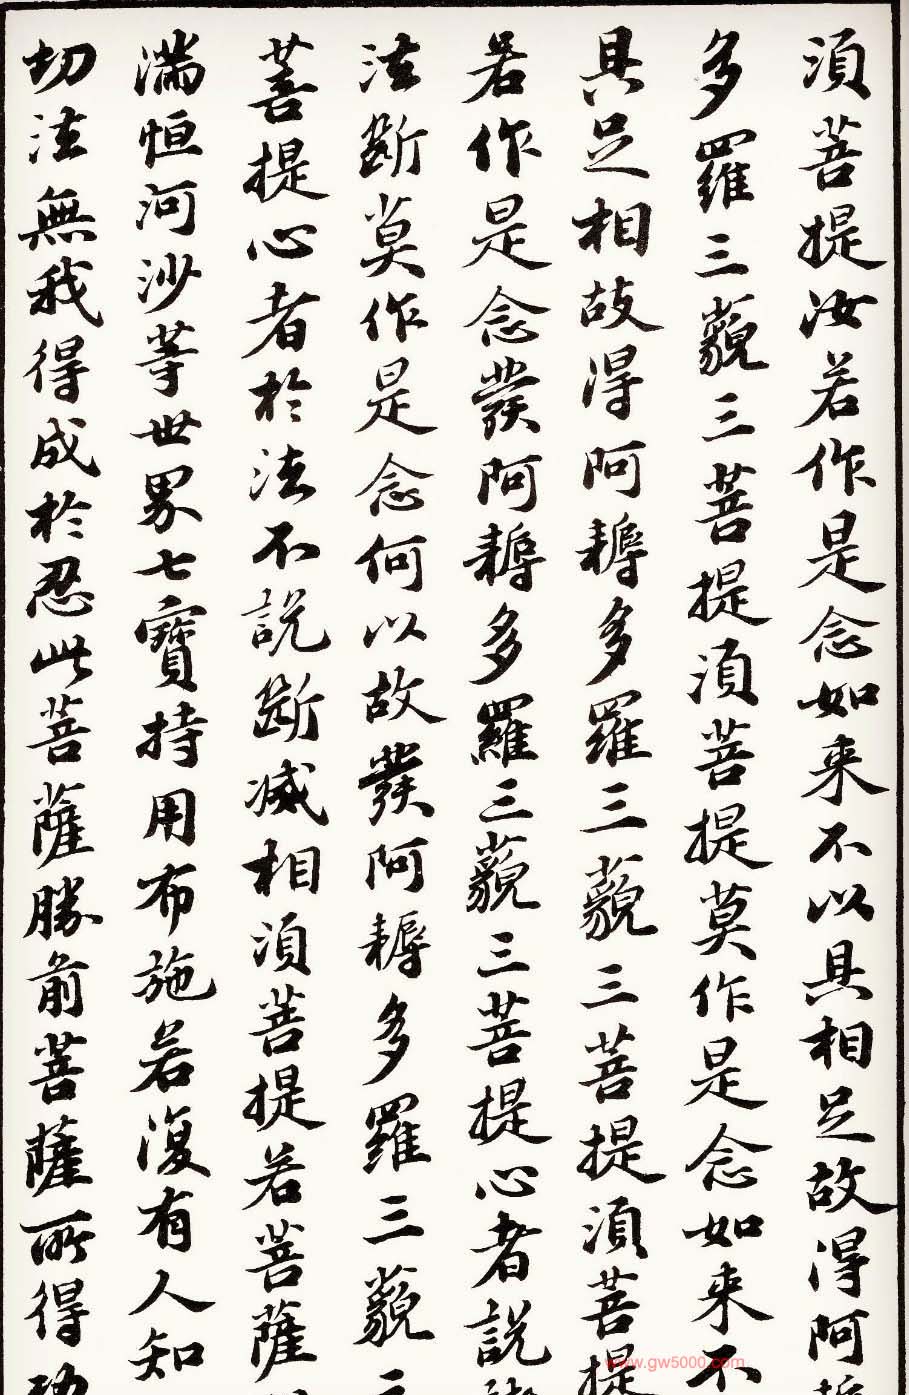 須菩提汝若作是念如来不以具相足故得阿
多羅三藐三菩提須菩提莫作是念如来不
具足相故得阿耨多羅三藐三菩提須菩提
若作是念發阿耨多羅三藐三菩提心者說
法斷莫作是念何以故發阿耨多羅三藐三
菩提心者於法不說斷滅相須菩提若菩薩
滿恒河沙等世界七寶持用布施若復有人知
切法無我得成於忍此菩薩勝前菩薩所得功
www.gw5000.com